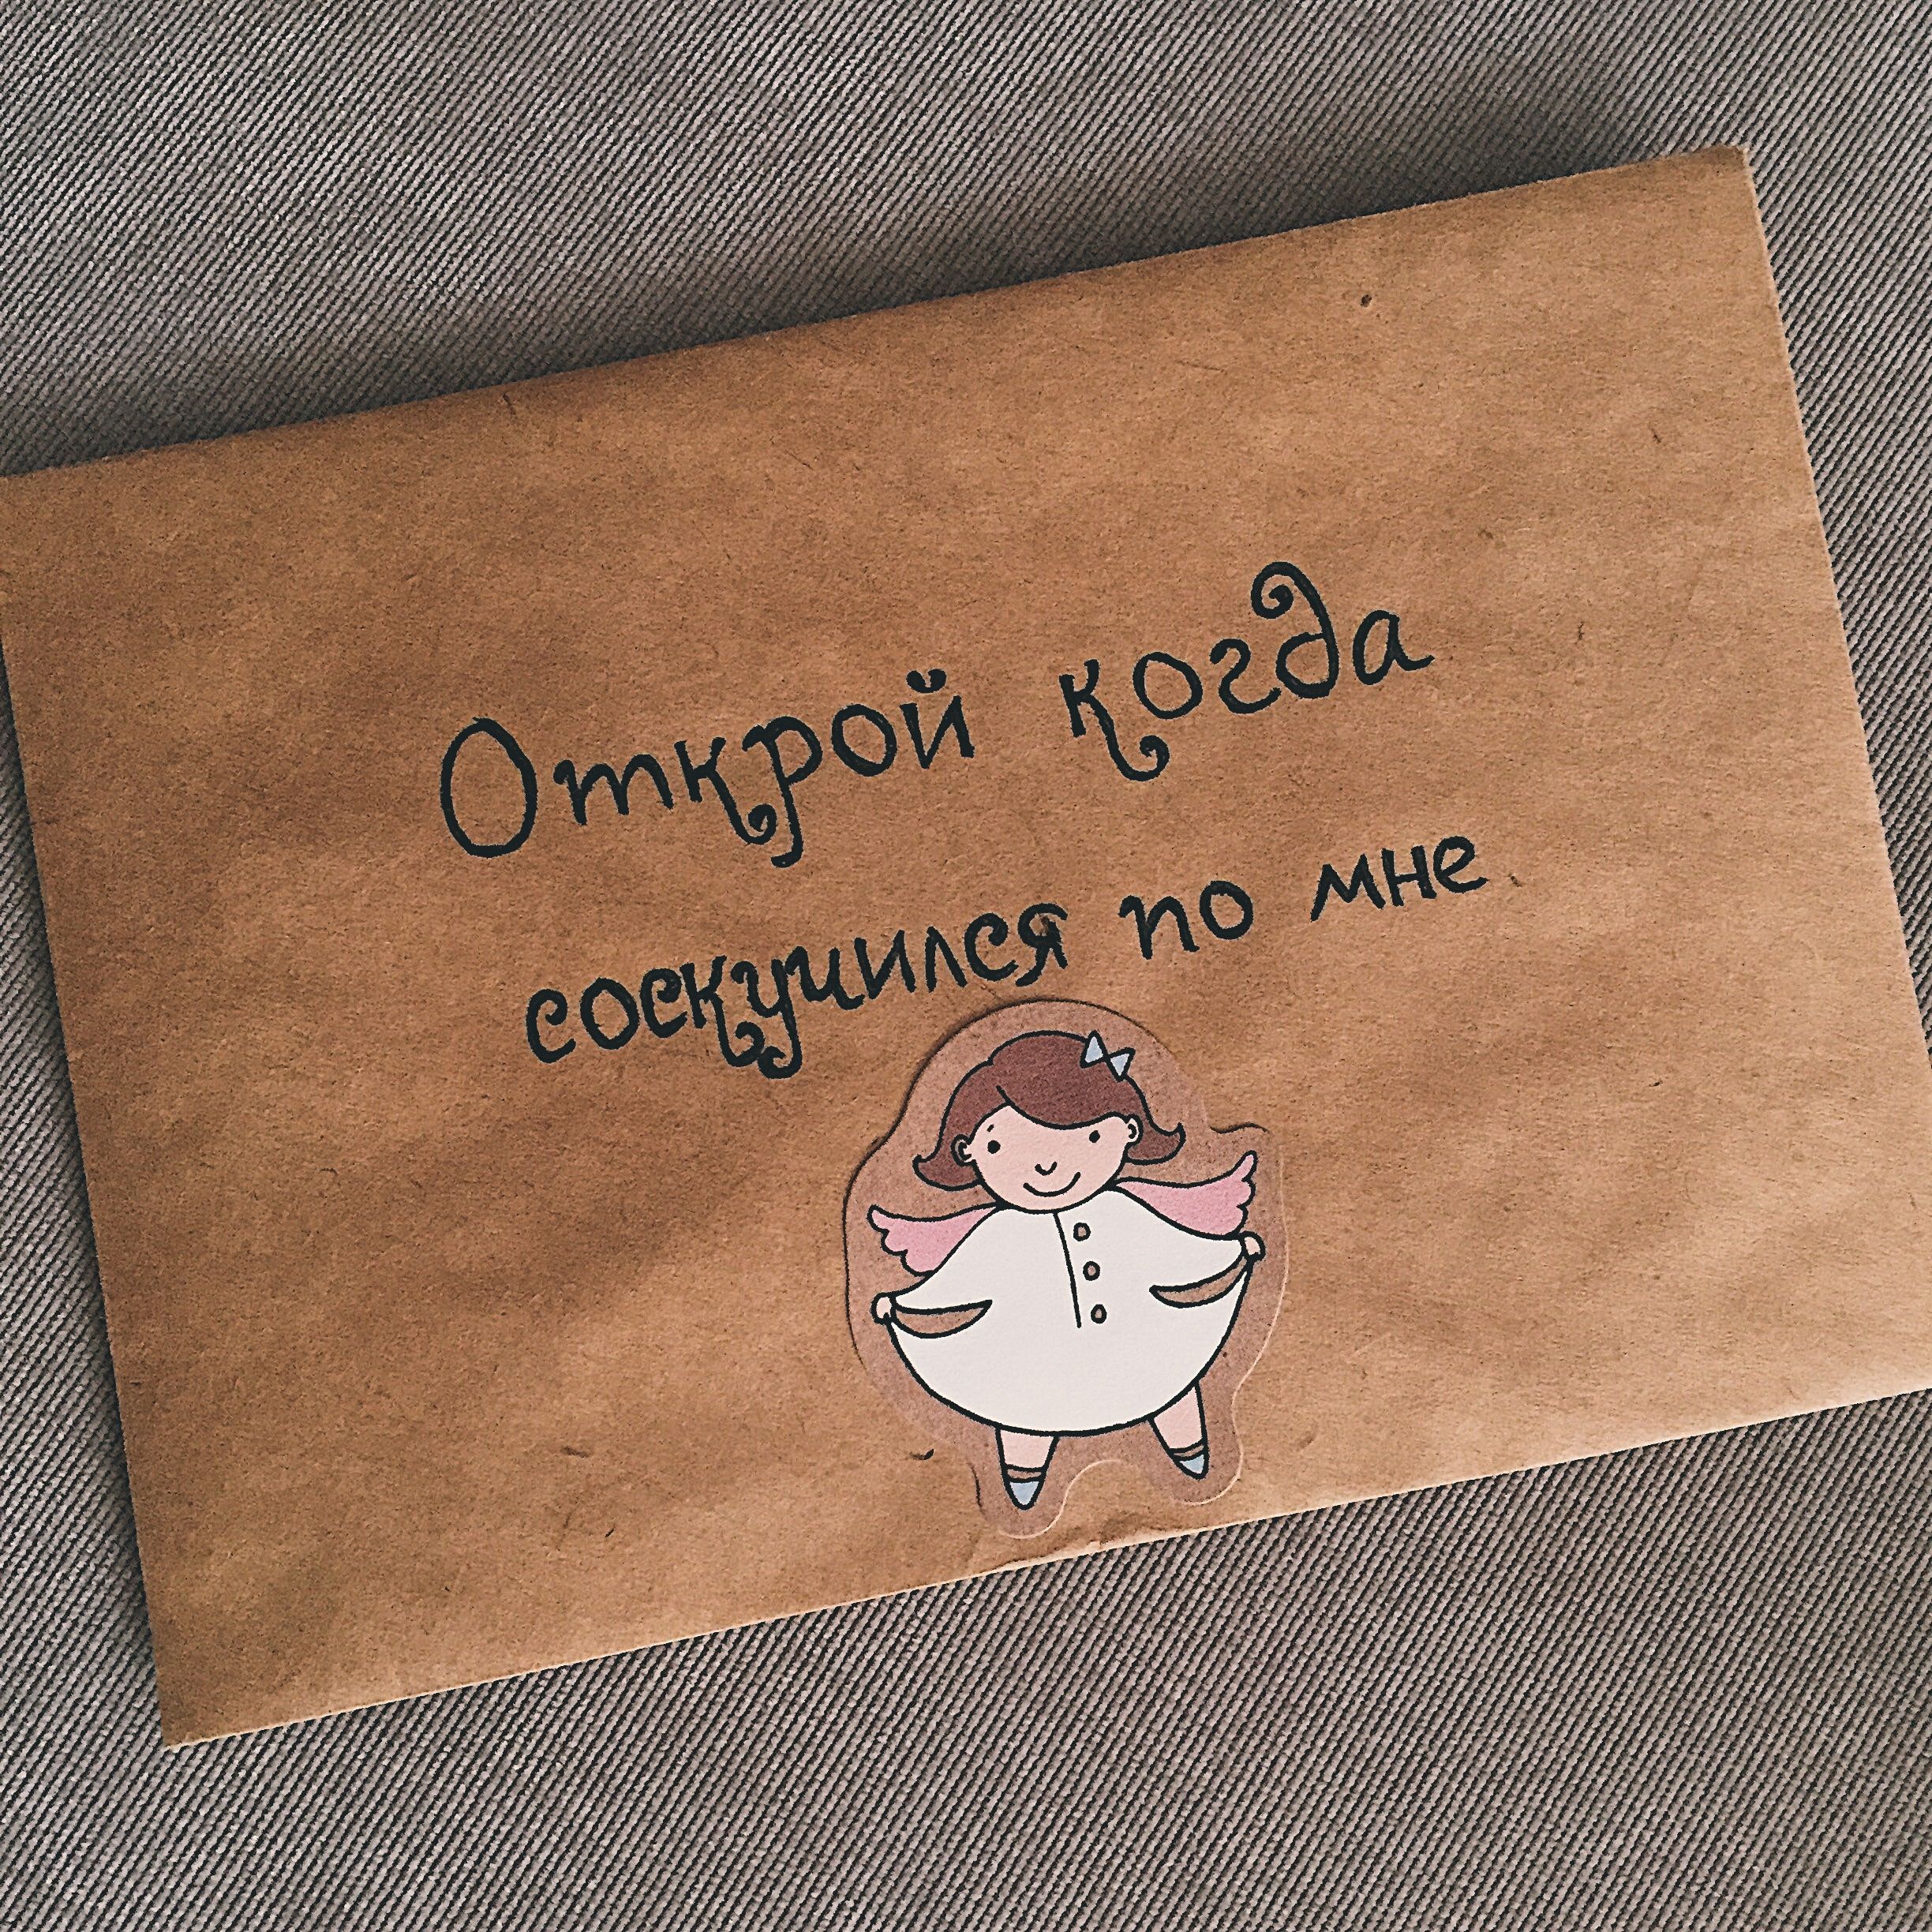 Открой когда
соскучился по мне